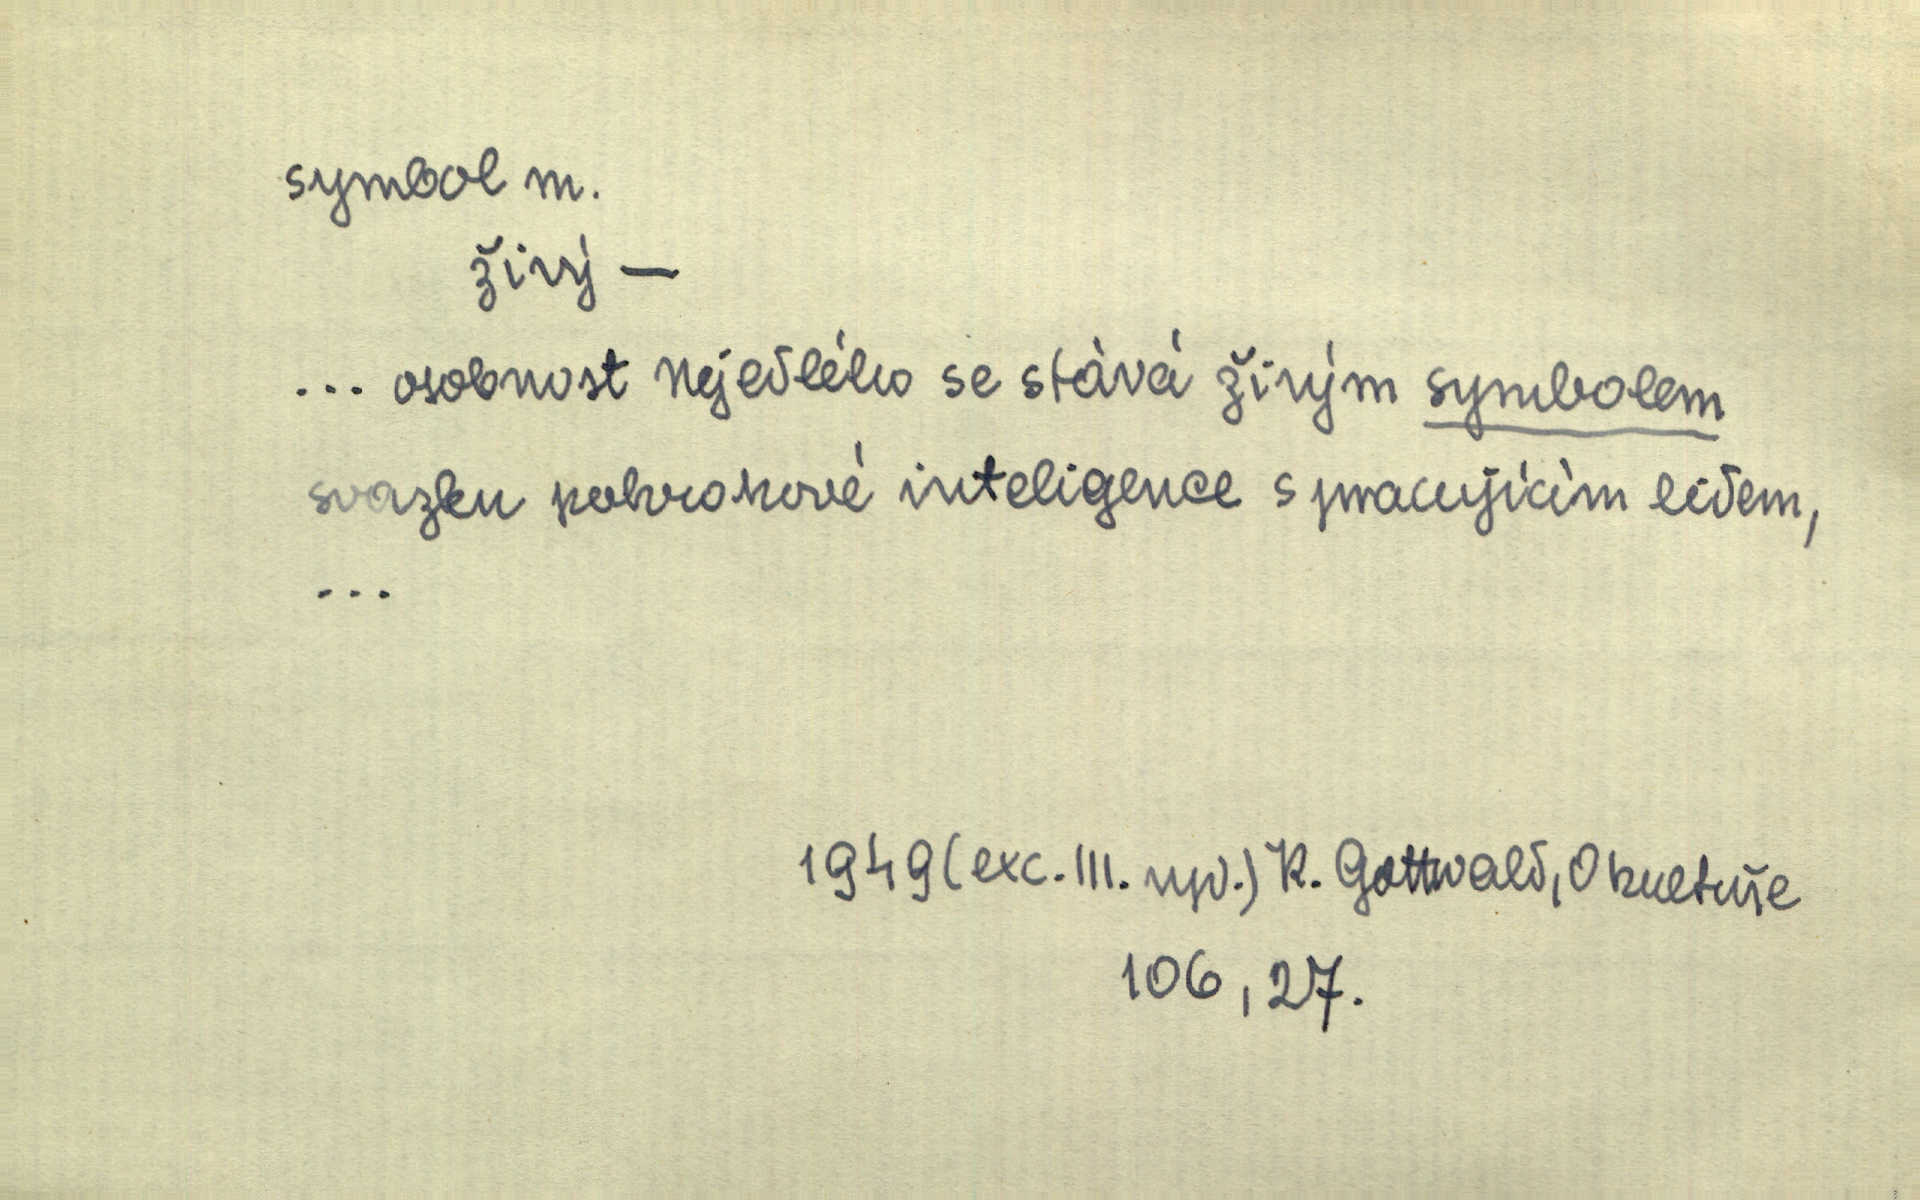 symbol m.
živý —
... osobnost Nejedlého se stává živým symbolem
svazku pokrokové inteligence s pracujícím lidem,
...
1949 (exc. III. vyd.) K. Gottwald, O kultuře
106, 27.